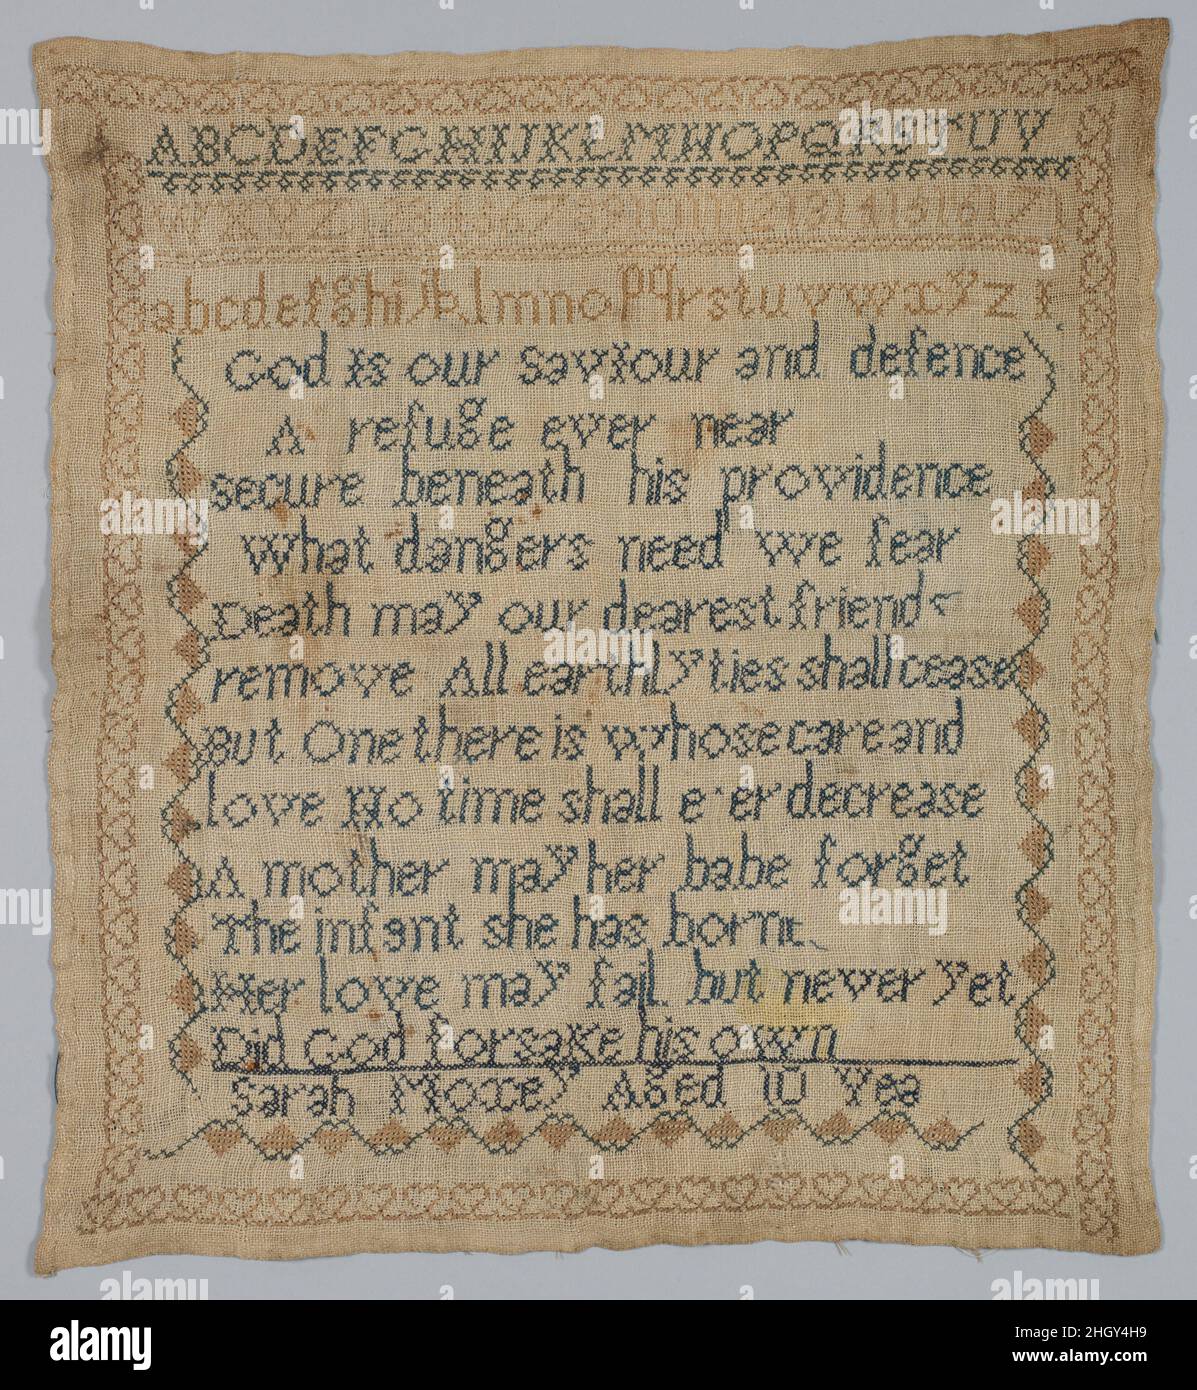 ABCDEFGHIJKLMNOPQRSTUV
WXYZ1234567891011121314151617
abcdefghijklmnopqrstuvwxyz
God is our saviour and defence
A refuge ever near
secure beneath his providence
What dangers need we fear
Death may our dearest friends
remove All earthly ties shall cease
But One there is whose care and
love No time shall e'er decrease
A mother may her babe forget
The infant she has borne
Her love may fail but never yet
Did God forsake his own
Sarah Moxey Aged 10 Yea
alamy
Image ID: 2HGY4H9
www.alamy.com